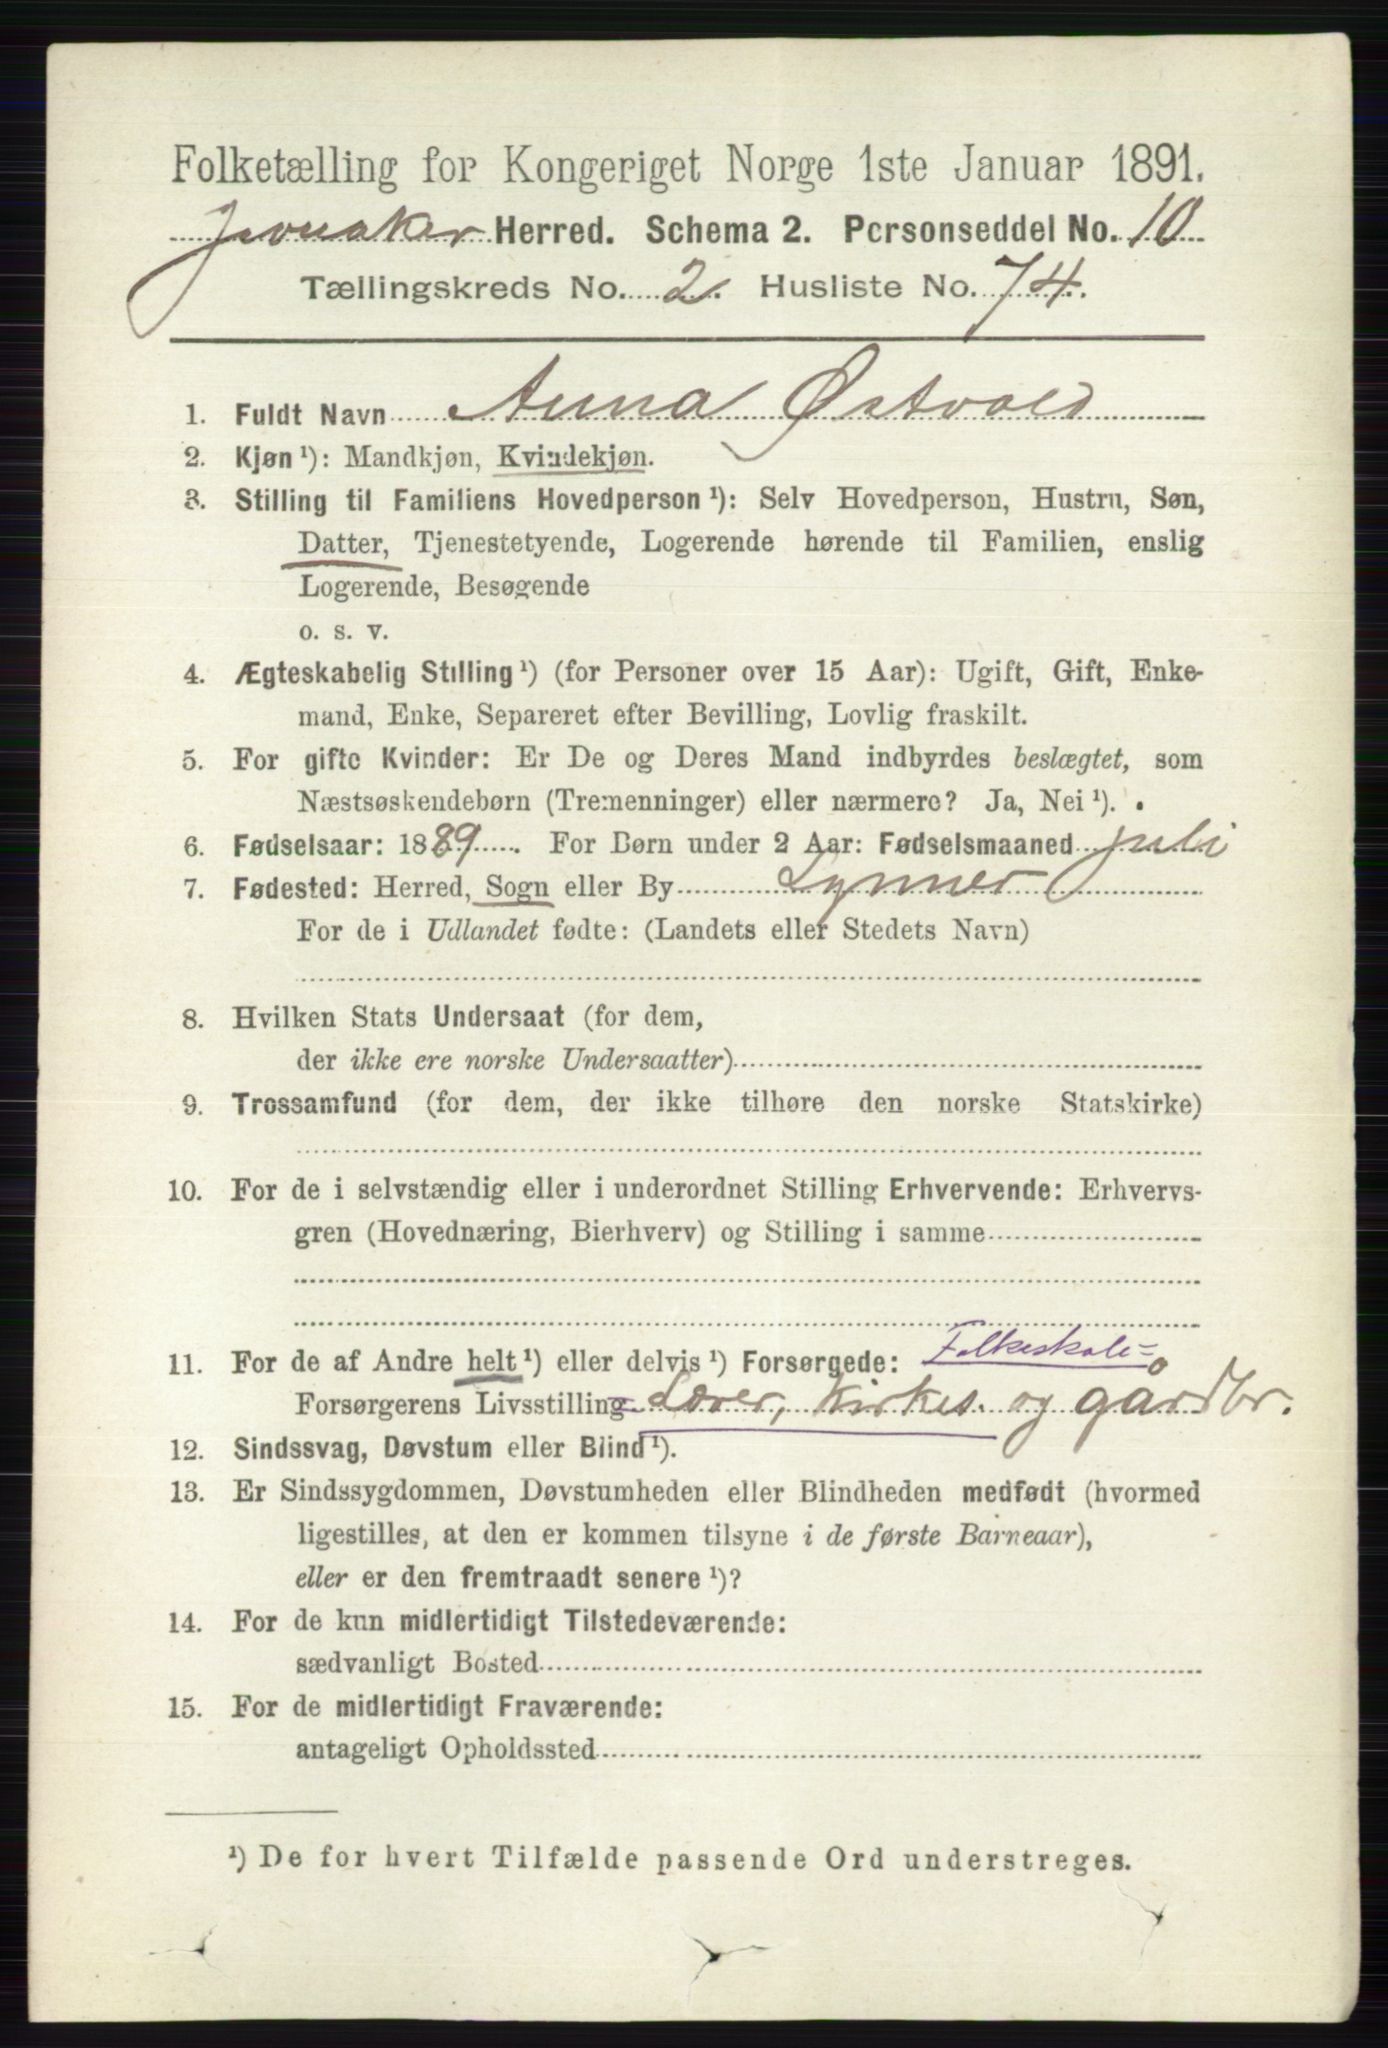 Folketælling for Kongeriget Norge 1ste Januar 1891.
Jevnaker Herred. Schema 2. Personseddel No. 10
Tællingskreds No. 2. Husliste No. 74.
1. Fuldt Navn Anna Østvold
2. Kjøn ¹): Mandkjøn, Kvindekjøn.
3. Stilling til Familiens Hovedperson ¹): Selv Hovedperson, Hustru, Søn,
Datter, Tjenestetyende, Logerende hørende til Familien, enslig
Logerende, Besøgende
o. s. v.
4. Ægteskabelig Stilling ¹) (for Personer over 15 Aar): Ugift, Gift, Enke-
mand, Enke, Separeret efter Bevilling, Lovlig fraskilt.
5. For gifte Kvinder: Er De og Deres Mand indbyrdes beslægtet, som
Næstsøskendebørn (Tremenninger) eller nærmere? Ja, Nei ¹).
6. Fødselsaar: 1889. For Børn under 2 Aar: Fødselsmaaned juli
7. Fødested: Herred, Sogn eller By Lynner
For de i Udlandet fødte: (Landets eller Stedets Navn)
8. Hvilken Stats Undersaat (for dem,
der ikke ere norske Undersaatter)
9. Trossamfund (for dem, der ikke tilhøre den norske Statskirke)
10. For de i selvstændig eller i underordnet Stilling Erhvervende: Erhvervs-
gren (Hovednæring, Bierhverv) og Stilling i samme
11. For de af Andre helt ¹) eller delvis ¹) Forsørgede: Folkeskole=
Forsørgerens Livsstilling Lærer, kirkes. og gårdbr.
12. Sindssvag, Døvstum eller Blind ¹).
13. Er Sindssygdommen, Døvstumheden eller Blindheden medfødt (hvormed
ligestilles, at den er kommen tilsyne i de første Barneaar),
eller er den fremtraadt senere ¹)?
14. For de kun midlertidigt Tilstedeværende:
sædvanligt Bosted
15. For de midlertidigt Fraværende:
antageligt Opholdssted
¹) De for hvert Tilfælde passende Ord understreges.